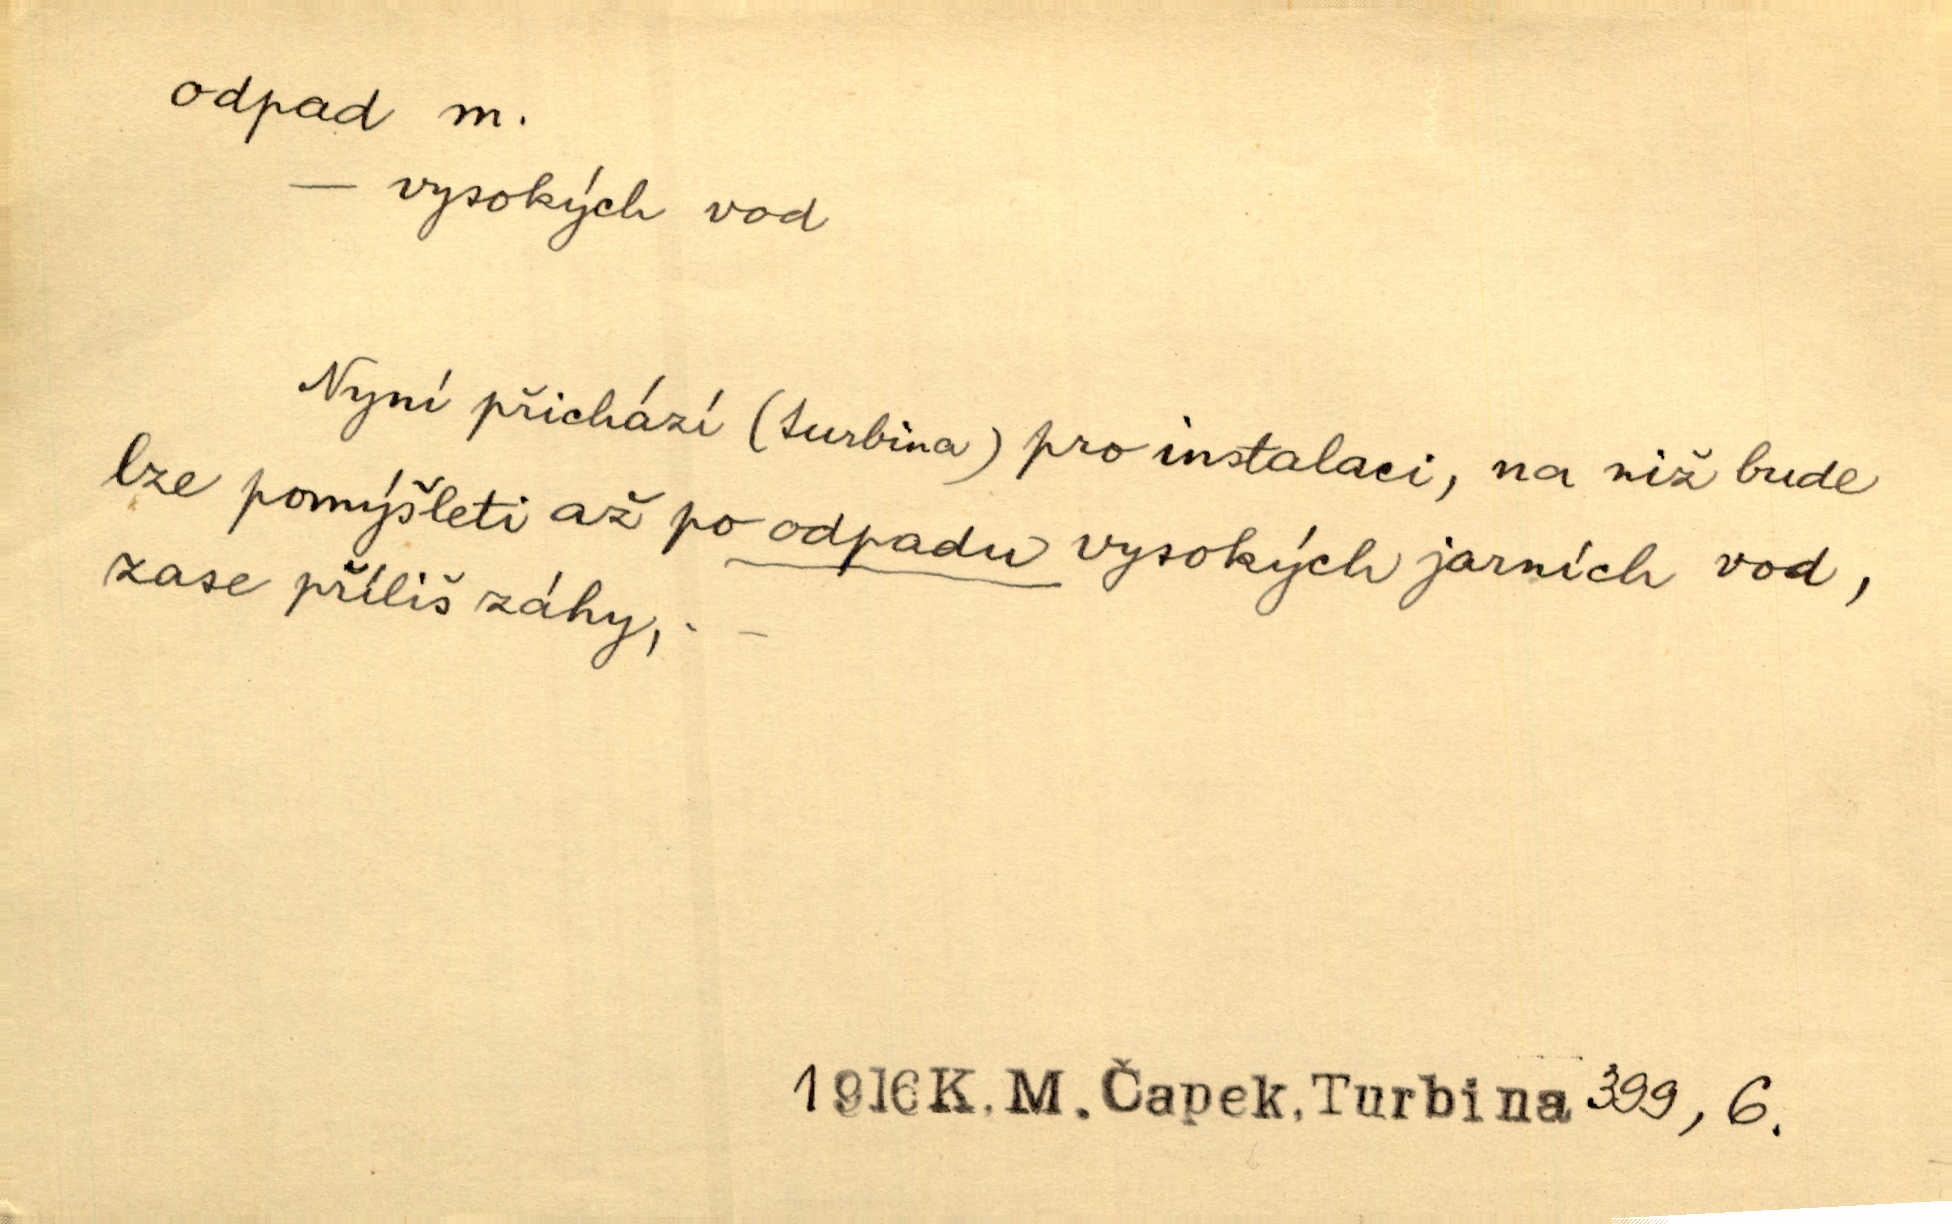 odpad m.
— vysokých vod
Nyní přichází (turbina) pro instalaci, na niž bude
lze pomýšleti až po odpadu vysokých jarních vod,
zase příliš záhy, . –
1916 K. M. Čapek, Turbina 399, 6.